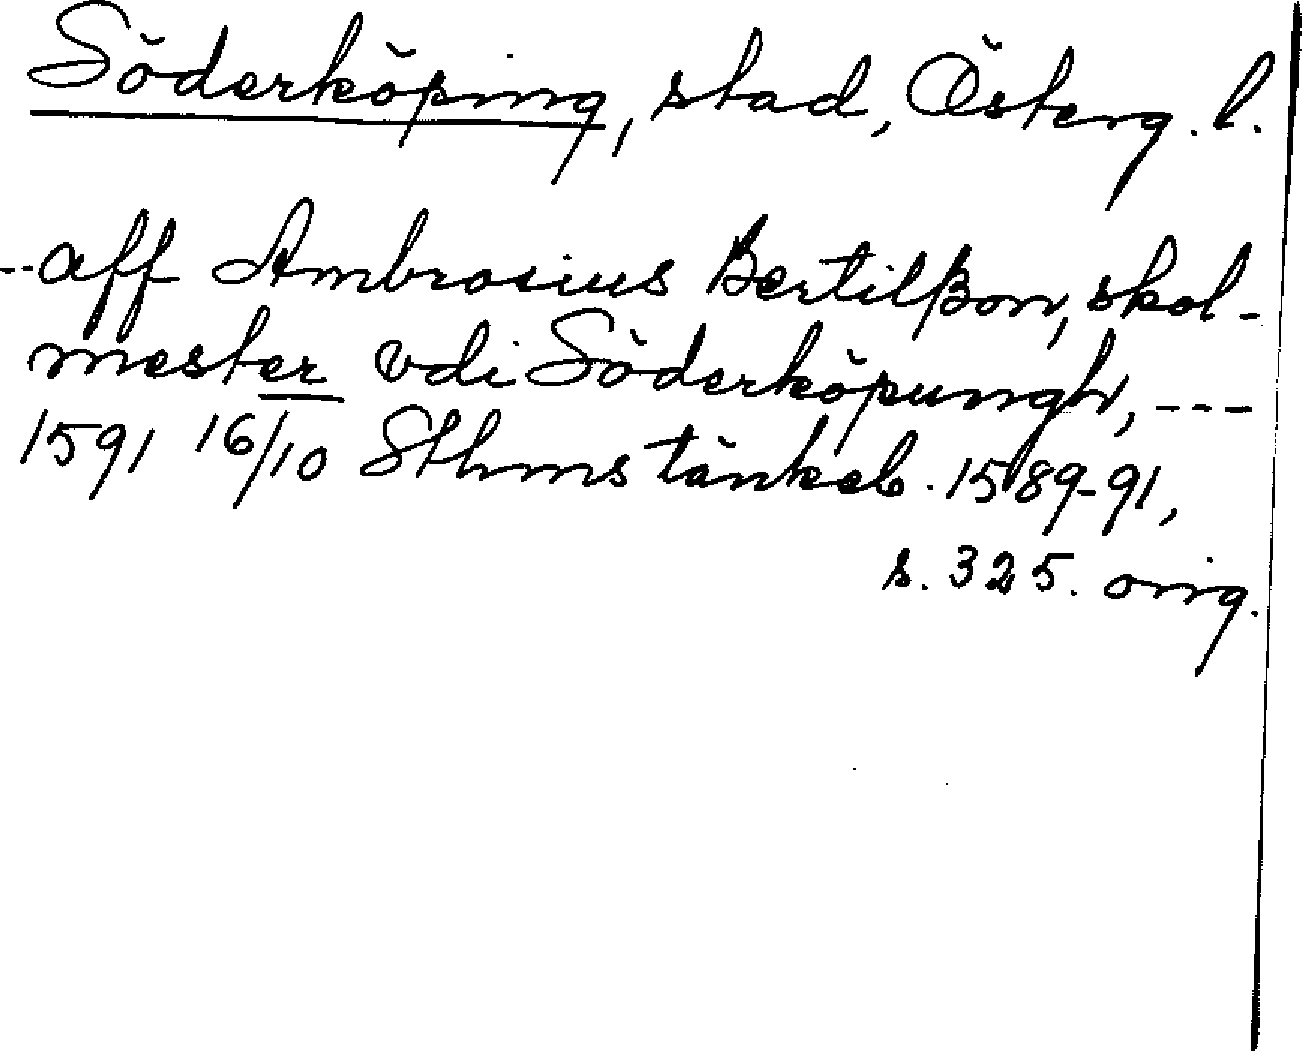 Söderköping, stad, Österg. l.
--aff Ambrosius Bertilßon, skol-
mester vdi Söderköpungh, ---
1591 16/10 Sthms tänkeb. 1589-91,
s. 325. orig.